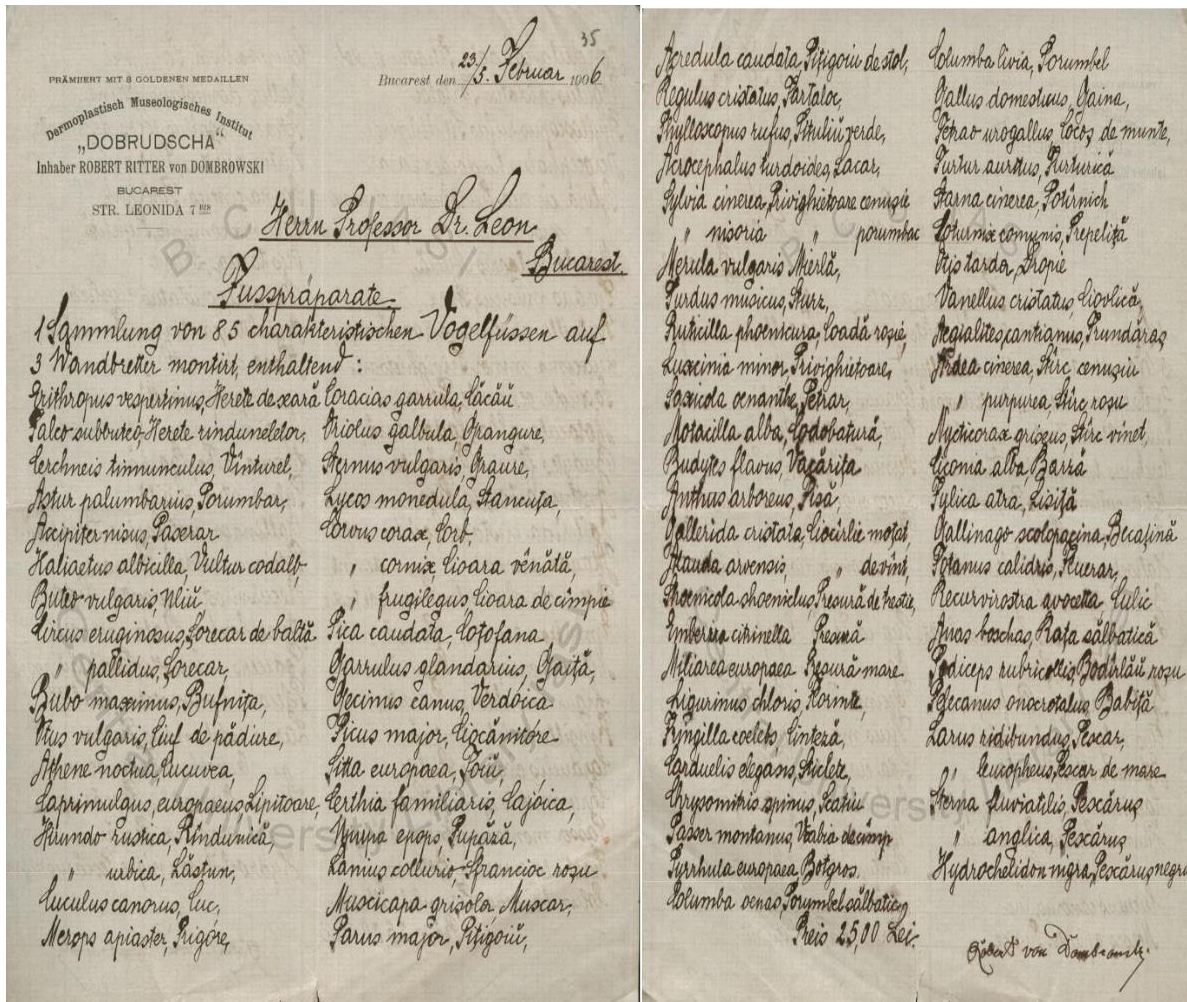 35
PRÄMIIERT MIT 8 GOLDENEN MEDAILLEN
Dermoplastisch Museologisches Institut
„DOBRUDSCHA"
Inhaber ROBERT RITTER von DOMBROWSKI
BUCAREST
STR. LEONIDA 7 BIS
Bucarest den 23/5. Februar 1906
Herrn Professor Dr. Leon
Bucarest.
Fusspräparate.
1 Sammlung von 85 charakteristischen Vogelfüssen auf
3 Wandbretter montirt, enthaltend:
Erithropus vespertinus, Herete de seară
Falco subbuteo, Herete rindunelelor,
Cerchneis tinnunculus, Vînturel,
Astur palumbarius, Porumbar,
Accipiter nisus, Paserar
Haliaetus albicilla, Vultur codalb,
Buteo vulgaris, Uliŭ,
Circus eruginosus, Șorecar de baltă
„ pallidus, Șorecar,
Bubo maximus, Bufnița,
Otus vulgaris, Ciuf de pădiure,
Athene noctua, Cucuvea,
Caprimulgus europaeus, Lipitoare,
Hirundo rustica, Rîndunică,
„ urbica, Lăstun,
Cuculus canorus, Cuc,
Merops apiaster, Prigóre,
Coracias garrula,
Oriolus galbula, Grangure,
Sternus vulgaris, Graure,
Lycos monedula, Stancuța,
Corvus corax, Corb,
„ cornix, Cioara vênătă,
„ frugilegus Cioara de cîmpie
Pica caudata, Coțofana
Garrulus glandarius, Gaiță,
Gecinus canus, Verdoica
Picus major, Ciocănitóre
Sitta europaea,
Certhia familiaris, Cajoica,
Upupa epops, Pupăză,
Lanius collurio, Sfrancioc roșu
Muscicapa grisola, Muscar,
Parus major, Pițigoiŭ,
Acredula caudata, Pițigoiu de stol,
Regulus cristatus,
Phylloscopus rufus, Pituliŭ verde,
Acrocephalus turdoides, Lacar,
Sylvia cinerea, Privighietoare cenușie
„ nisoria „ porumbac
Merula vulgaris Mierlă,
Turdus musicus, Sturz,
Ruticilla phoenicura, Coadă roșie,
Luscinia minor, Privighietoare,
Saxicola oenanthe, Petrar,
Motacilla alba, Codobatură,
Budytes flavus, Vacărița
Anthus arboreus, Fisă,
Gallerida cristata, Ciocîrlie moțat,
Alauda arvensis, „ de vînt,
Schoenicola schoeniclus, Presură de trestie,
Emberiza citrinella Presură
Miliarea europaea Presură mare
Ligurinus chloris, Florinte,
Fringilla coelebs, Cinteză,
Carduelis elegans, Sticlete,
Chrysomitris spinus, Scatiu
Passer montanus, Vrabia de cîmp
Pyrrhula europaea, Botgros.
Columba oenas, Porumbel sălbatic,
Columba livia, Porumbel
Gallus domesticus, Gaina,
Tetrao urogallus, Cocoș de munte,
Turtur auritus, Turturică
Starna cinerea, Potîrnich
Coturnix comunis, Prepeliță
Otis tarda, Dropie
Vanellus cristatus,
Aegialites cantianus, Prundăraș
Ardea cinerea, Stîrc cenușiu
„ purpurea, Stîrc roșu
Nycticorax griseus, Stîrc vînet,
Ciconia alba, Barză
Fulica atra, Lisiță
Gallinago scolopacina, Becațină
Totanus calidris, Fluerar,
Recurvirostra avocetta Culic
Anas boschas, Rața sălbatică
Podiceps rubricollis, Bodîrlău roșu
Pelecanus onocrotalus, Babiță
Larus ridibundus, Pescar,
„ leucopheus, Pescar de mare
Sterna fluviatilis, Pescăruș
„ anglica, Pescăruș
Hydrochelidon nigra, Pescăruș negru
Preis 25,00 Lei.
Robert von Dombrowski.